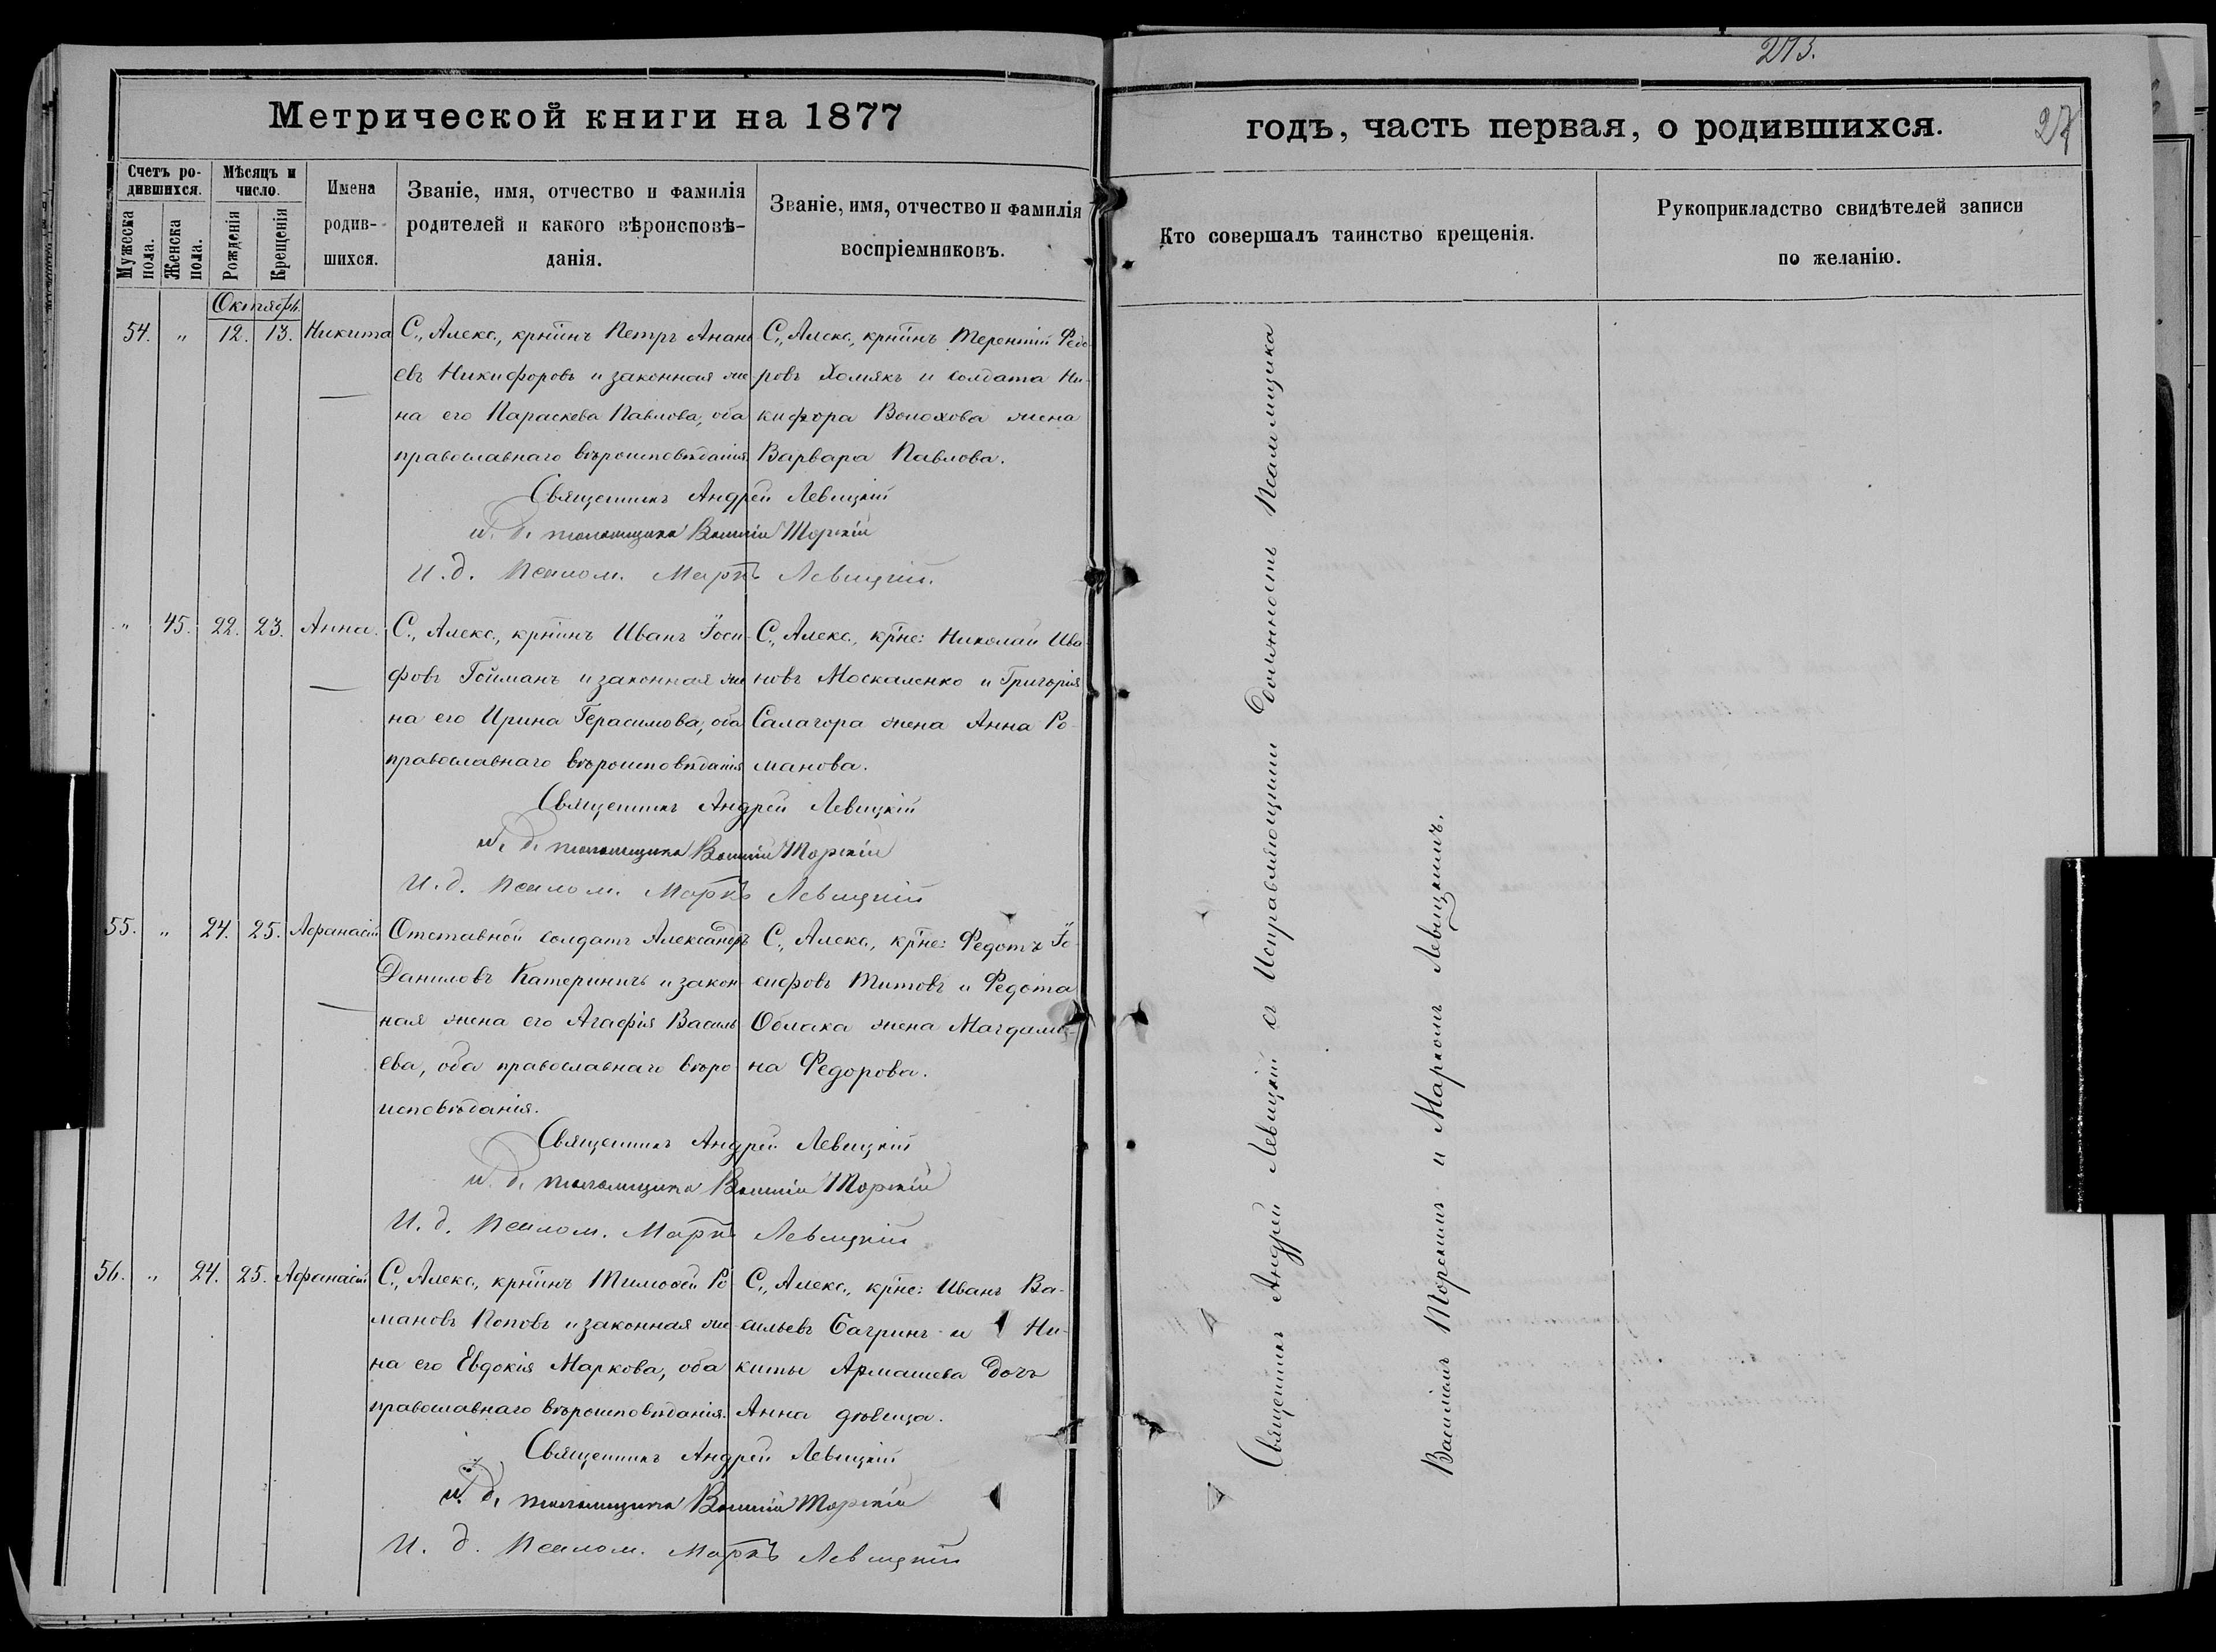 273.
Метрической книги на 1877
годъ, часть первая, о родившихся.
27
Счетъ ро-
дившихся.
Мѣсяцъ и
число.
Мужеска
пола.
Женска
пола.
Рожденія
Крещенія
Имена
родив-
шихся.
Званіе, имя, отчество и фамилія
родителей и какого вѣроисповѣ-
данія.
Званіе, имя, отчество и фамилія
воспріемниковъ.
Кто совершалъ таинство крещенія.
Рукоприкладство свидѣтелей записи
по желанію.
Октябрь
54. " 12. 13. Никита
С., Алекс., крнинъ Петръ Анань
евъ Никифоровъ и законная же
на его Параскева Павлова, оба
православнаго вѣроисповѣданія.
С., Алекс., крнинъ Терентій Федо-
ровъ Хомякъ и солдата Ни-
кифора Волохова жена
Варвара Павлова.
Священникъ Андрей Левицкій
и. д. псаломщика Василій Торскій
И. д. Псалом. Маркъ Левицкій.
" 45. 22. 23. Анна.
С., Алекс., крнинъ Иванъ Іоси-
фовъ Гойманъ и законная же
на его Ирина Герасимова, оба
православнаго вѣроисповѣданія
С., Алекс., крне: Николай Ива
новъ Москаленко и Григорія
Салагора жена Анна Ро-
манова.
Священникъ Андрей Левицкій
и. д. псаломщика Василій Торскій
И. д. Псалом. Маркъ Левицкій
55. " 24. 25. Афанасій
Отставной солдатъ Александръ
Даниловъ Катериничъ и закон-
ная жена его Агафія Василь
ева, оба православнаго вѣро
исповѣданія.
С., Алекс., крне: Федотъ Іо-
сифовъ Титовъ и Федота
Облака жена Магдали-
на Федорова.
Священникъ Андрей Левицкій
и. д. псаломщика Василій Торскій
И. д. Псалом. Маркъ Левицкій
56. " 24. 25. Афанасій
С., Алекс., крнинъ Тимофей Ро
мановъ Поповъ и законная же
на его Евдокія Маркова, оба
православнаго вѣроисповѣданія.
С., Алекс., крне: Иванъ Ва-
сильевъ Багринъ и Ни-
киты Армашева дочь
Анна дѣвица.
Священникъ Андрей Левицкій
и. д. псаломщика Василій Торскій
И. д. Псалом. Маркъ Левицкій
Священникъ Андрей Левицкій съ Исправляющими Должность Псаломщика
Василіемъ Торскимъ и Маркомъ Левицкимъ.